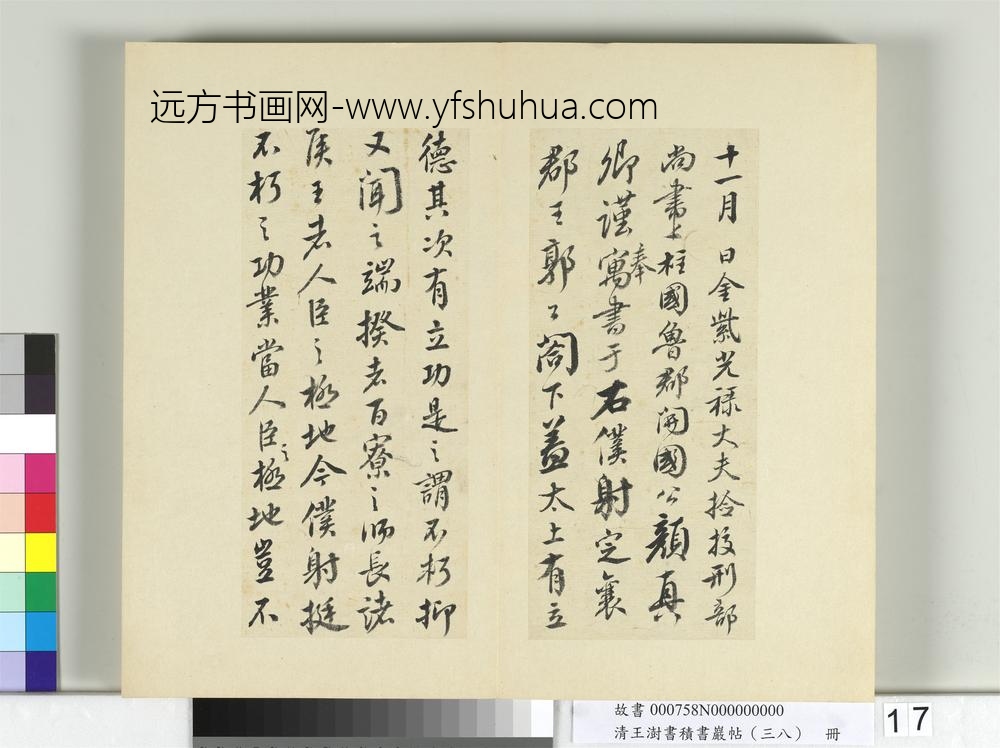 远方书画网-www.yfshuhua.com
十一月 日金紫光祿大夫檢挍刑部
尚書上柱國魯郡開國公顏真
卿謹奉寓書于右僕射定襄
郡王郭公閣下蓋太上有立
德其次有立功是之謂不朽抑
又聞之端揆者百寮之師長諸
侯王者人臣之極地今僕射挺
不朽之功業當人臣之極地豈不
故書 000758N000000000
清王澍書積書巖帖（三八） 冊
17